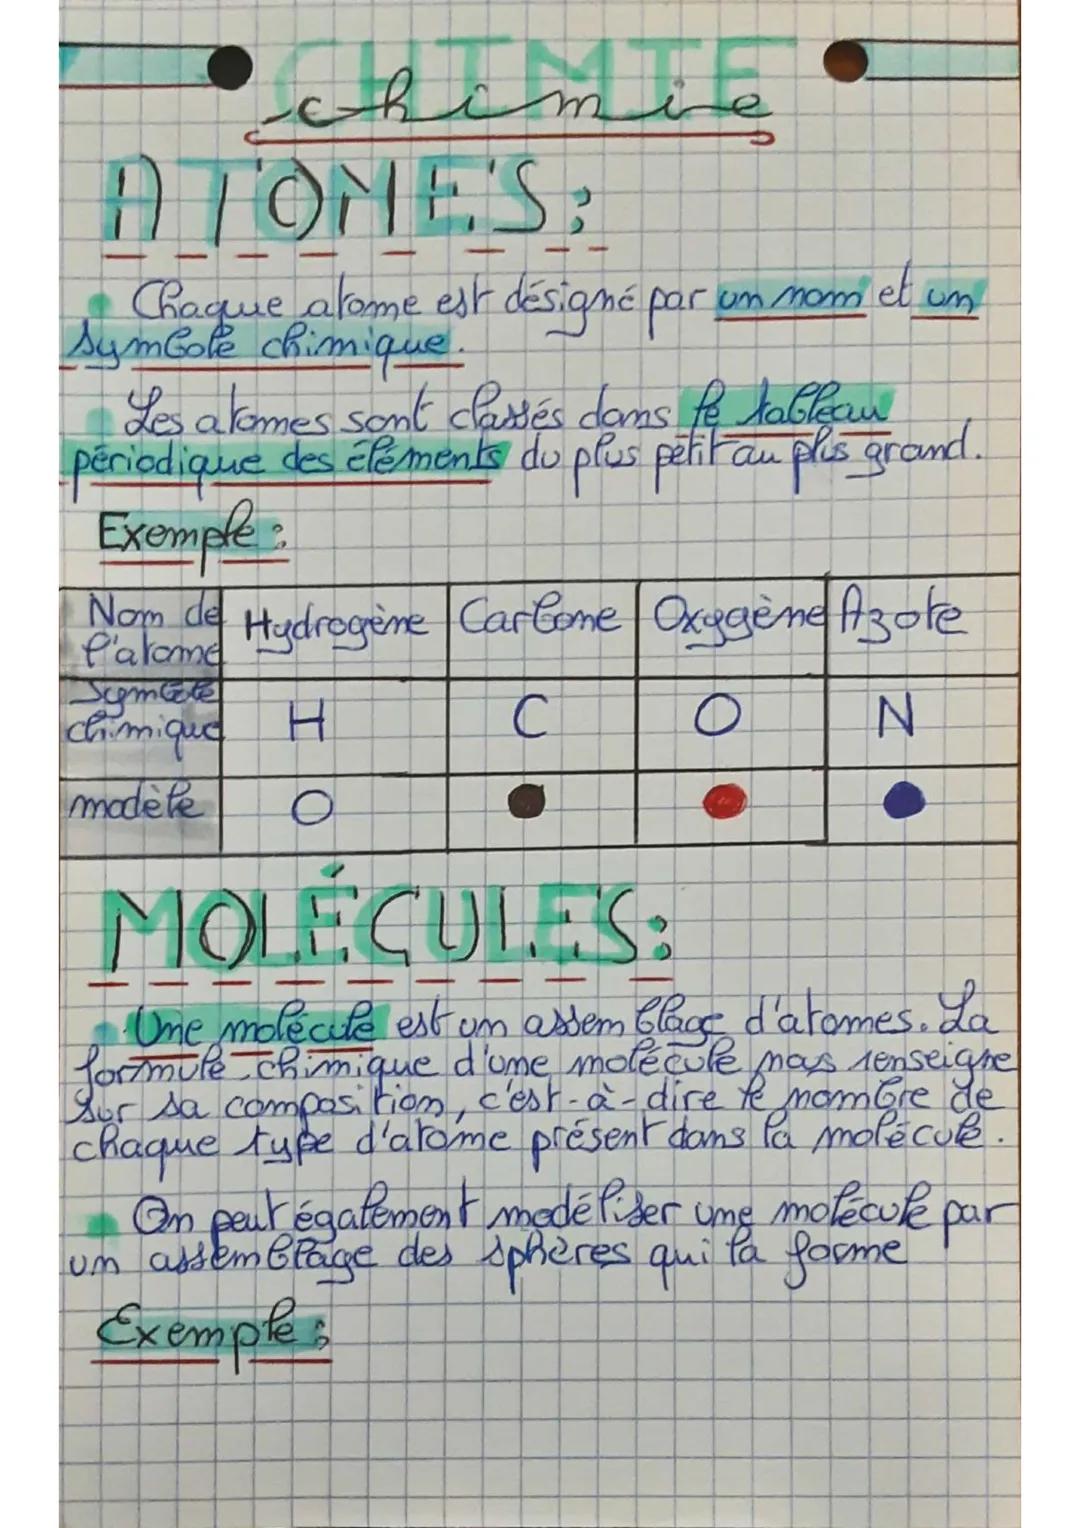 CHIMIE
chimie
ATOMES:
Chaque atome est désigné par un nom et un
symbole chimique.
Les atomes sont classés dans le tableau
périodique des éléments du plus petit au plus grand.
Exemple:
Nom de l'atome Hydrogène Carbone Oxygène Azote
symbole chimique H C O N
modèle
MOLÉCULES:
Une molécule est un assemblage d'atomes. La
formule chimique d'une molécule nous renseigne
sur sa composition, c'est-à-dire le nombre de
chaque type d'atome présent dans la molécule.
On peut également modéliser une molécule par
un assemblage des sphères qui la forme
Exemple: